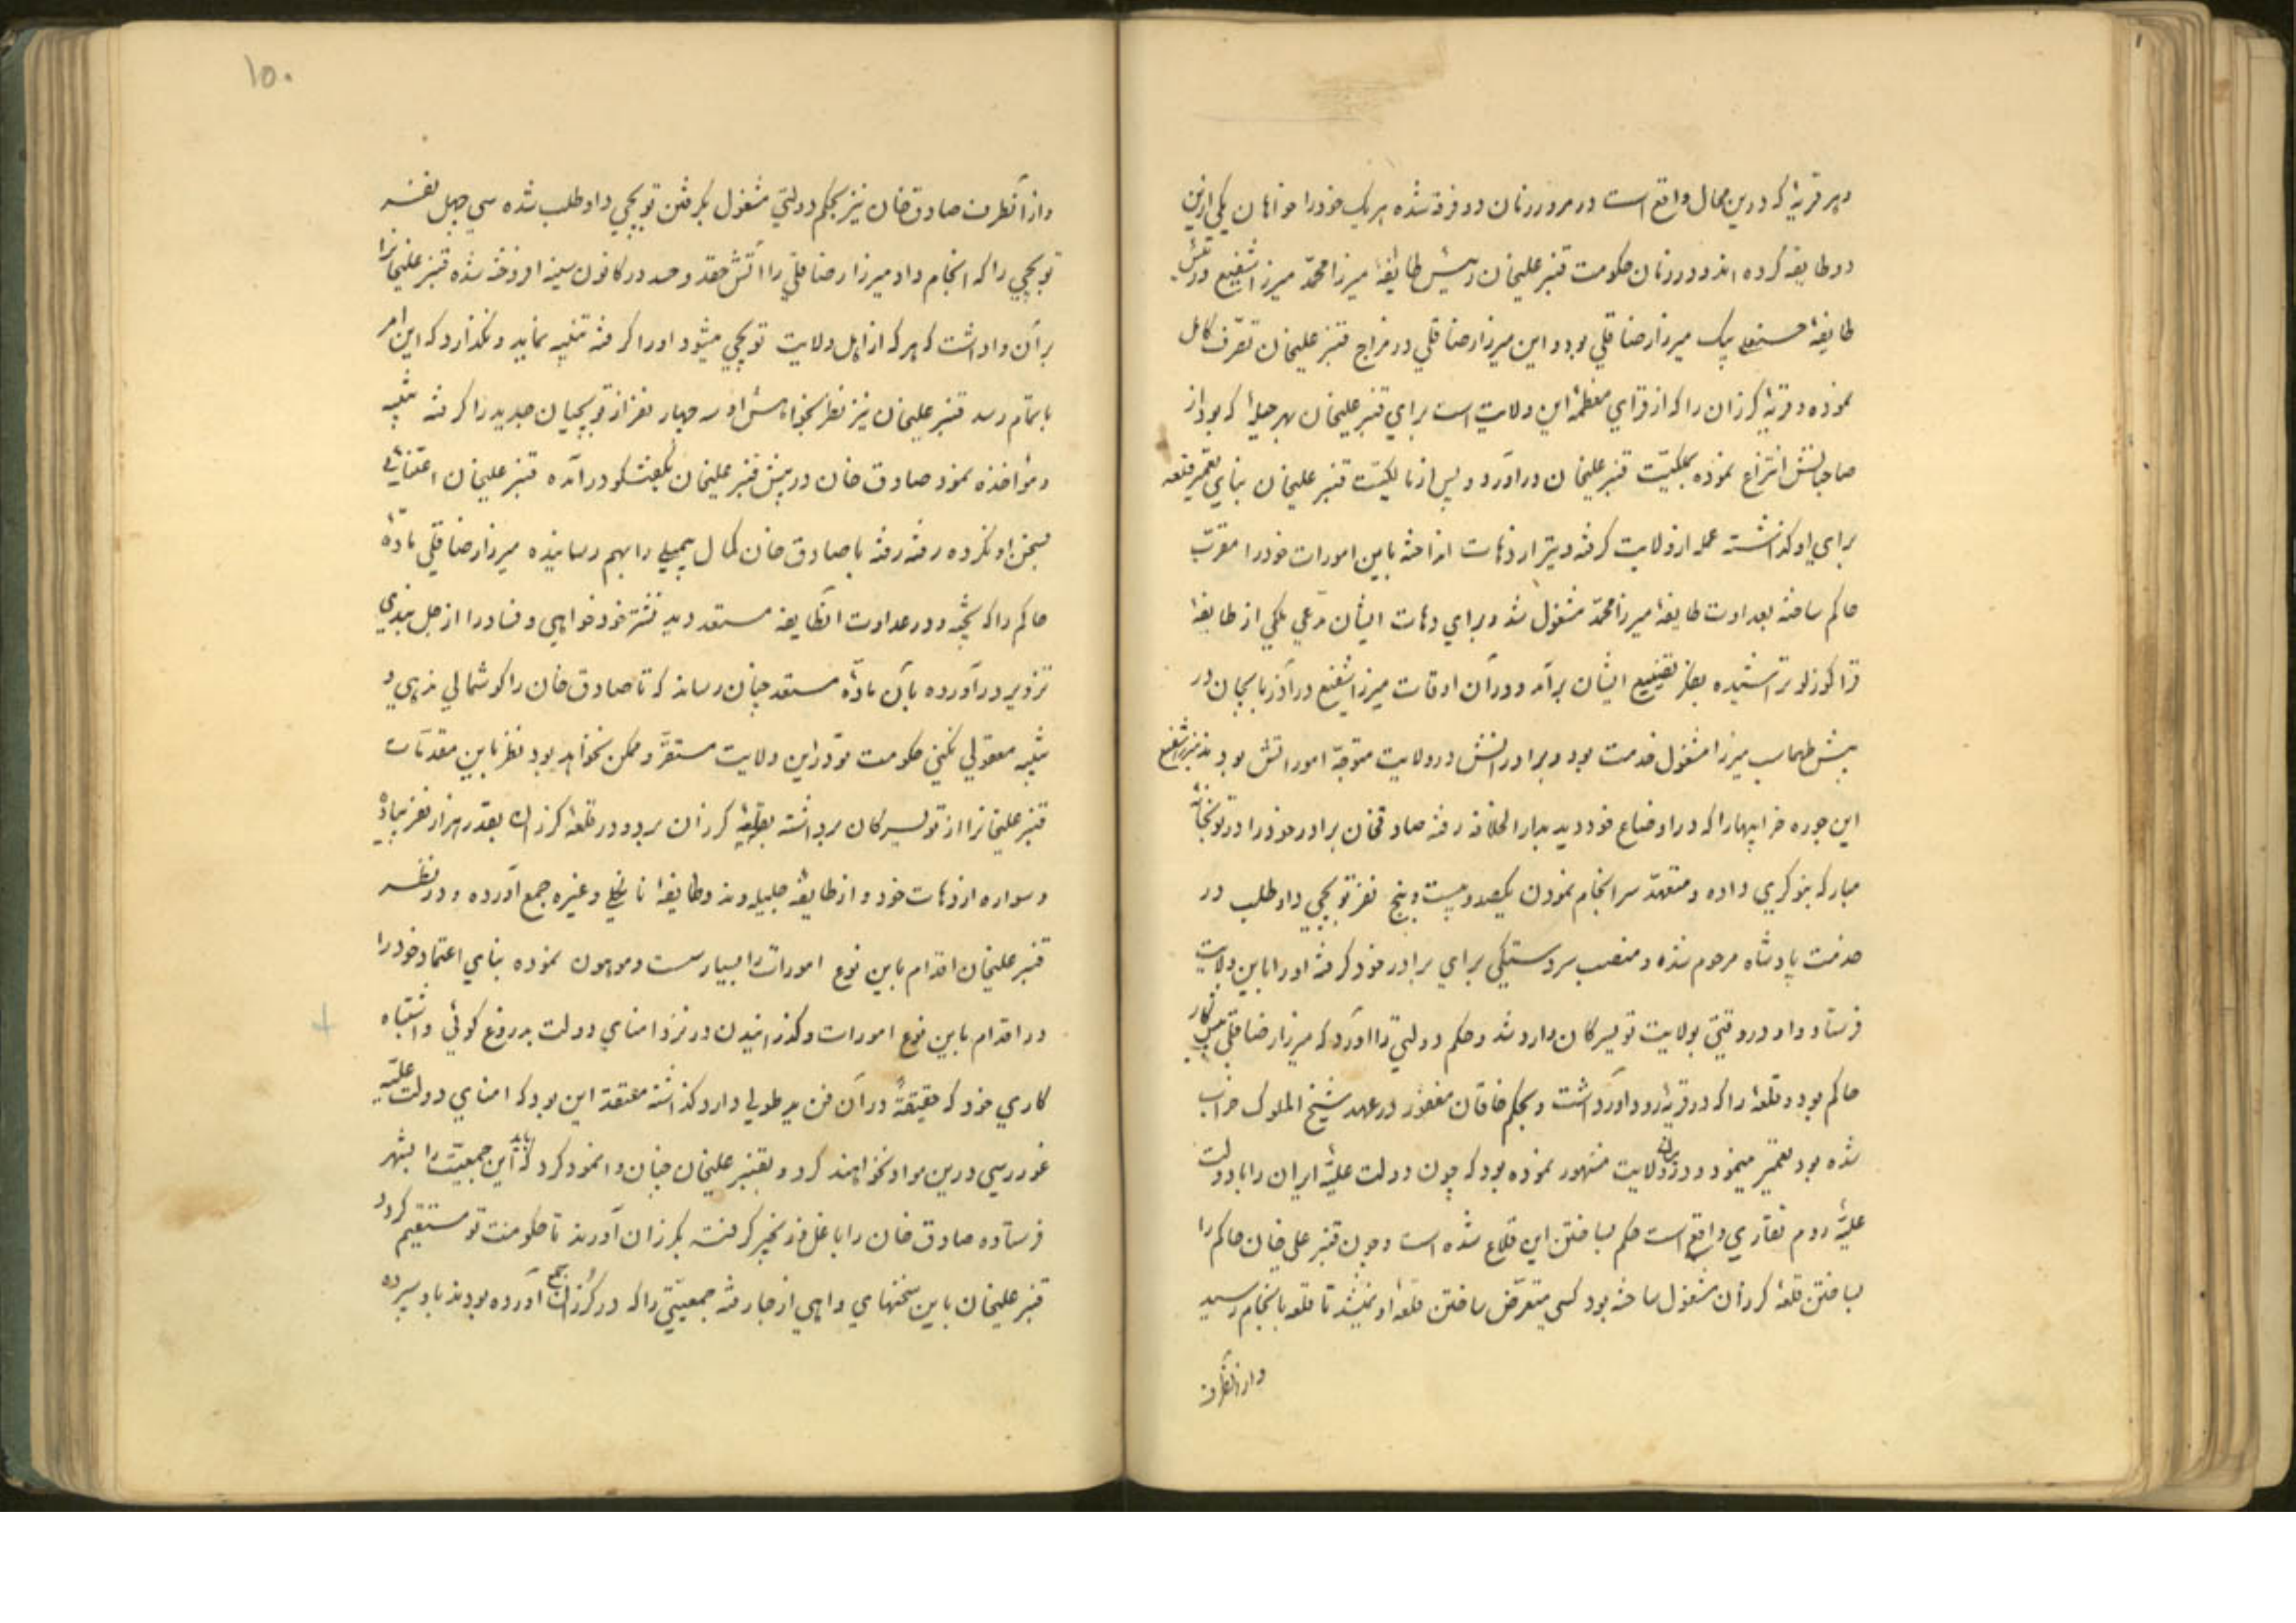 و هر قریهٔ که درین محال واقع است در مرور زمان دو فرقه شده هر یک خود را خواهان یکی ازین
دو طایفه کرده اند و در زمان حکومت قنبر علیخان رئیس طایفهٔ میرزا محمّد میرزا شفیع و رئیس
طایفهٔ بیک میرزا رضا قلی بود و این میرزا رضا قلی در مزاج قنبر علیخان تصرّف کامل
نموده و قریهٔ کرزان را که از قرای معظمهٔ این ولایت است برای قنبر علیخان بهر حیلهٔ که بود از
صاحبانش انتزاع نموده بملکیّت قنبر علیخان در آورد و پس از مالکیّت قنبر علیخان بنای تعمیر قلعه
برای او گذاشته عمله از ولایت گرفته و تیر از دهات انداخته باین امورات خود را مقرّب
حاکم ساخته بعداوت طایفهٔ میرزا محمّد مشغول شد و برای دهات ایشان مدّعی ملکی از طایفهٔ
قراگوزلو تراشیده بفکر تضییع ایشان برآمد و در آن اوقات میرزا شفیع در آذربایجان در
پیش طهماسب میرزا مشغول خدمت بود و برادرانش در ولایت متوجّه اموراتش بودند میرزا شفیع
این جوره خرابیها را که در اوضاع خود دید بدار الخلافه رفته صادقخان برادر خود را در توپخانهٔ
مبارکه بنوکری داده و متعهّد سرانجام نمودن یکصد و بیست و پنج نفر توپچی داوطلب در
خدمت پادشاه مرحوم شده و منصب سردستگی برای برادر خود گرفته او را باین ولایت
فرستاد و او در وقتی بولایت تویسرکان وارد شد و حکم دولتی را آورد که میرزا رضا قلی پیشکار
حاکم بود و قلعهٔ را که در قریهٔ رودآور داشت و بحکم خاقان مغفور در عهد شیخ الملوک خراب
شده بود تعمیر مینمود و در ولایت مشهور نموده بود که چون دولت علیّهٔ ایران را با دولت
علیّهٔ روم نقاری واقع است حکم بساختن این قلاع شده است و چون قنبر علی خان حاکم را
بساختن قلعهٔ کرزان مشغول ساخته بود کسی متعرّض ساختن قلعهٔ او نمیشد تا قلعه بانجام رسید
و از آنطرف
۱۵۰
و از آنطرف صادقخان نیز بحکم دولتی مشغول بگرفتن توپچی داوطلب شده سی چهل نفر
توپچی را که انجام داد میرزا رضا قلی را آتش حقد و حسد در کانون سینه افروخته شده قنبر علیخان را
بر آن واداشت که هر که از اهل ولایت توپچی میشود او را گرفته تنبیه نماید و نگذارد که این امر
باتمام رسد قنبر علیخان نیز نظر بخواهش او سه چهار نفر از توپچیان جدید را گرفته تنبیه
و مؤاخذه نمود صادق خان در پیش قنبر علیخان بگفتگو در آمده قنبر علیخان اعتنائی
بسخن او نکرده رفته رفته با صادق خان کمال بیمیلی را بهم رسانیده میرزا رضا قلی مادّهٔ
حاکم را که پخته و در عداوت آنطایفه مستعد دید نشتر خودخواهی و فساد را از جل بندی
تزویر در آورده بآن مادّهٔ مستعد چنان رساند که تا صادق خان را گوشمالی ندهی و
تنبیه معقولی نکنی حکومت تو در این ولایت مستقرّ و ممکن نخواهد بود نظر باین مقدّمات
قنبر علیخان را از تویسرکان برداشته بقریهٔ کرزان برد و در قلعهٔ کرزان بقدر هزار نفر پیاده
و سواره از دهات خود و از طایفهٔ جلیله وند و طایفهٔ نانکلی و غیره جمع آورده و در نظر
قنبر علیخان اقدام باین نوع امورات را بسیار سست و موهون نموده بنای اعتماد خود را
در اقدام باین نوع امورات و گذرانیدن در نزد امنای دولت بدروغ گوئی و اشتباه
کاری خود که حقیقةً در آن فن ید طولی دارد گذاشته معتقد این بود که امنای دولت علیّه
غوررسی درین مواد نخواهند کرد و بقنبر علیخان چنان وانمود کرد که باید این جمعیّت را بشهر
فرستاده صادق خان را با غل و زنجیر گرفته بکرزان آورند تا حکومت تو مستقیم گردد
قنبر علیخان باین سخنهای واهی از جا رفته جمعیّتی را که در کرزان جمع آورده بودند باو سپرده